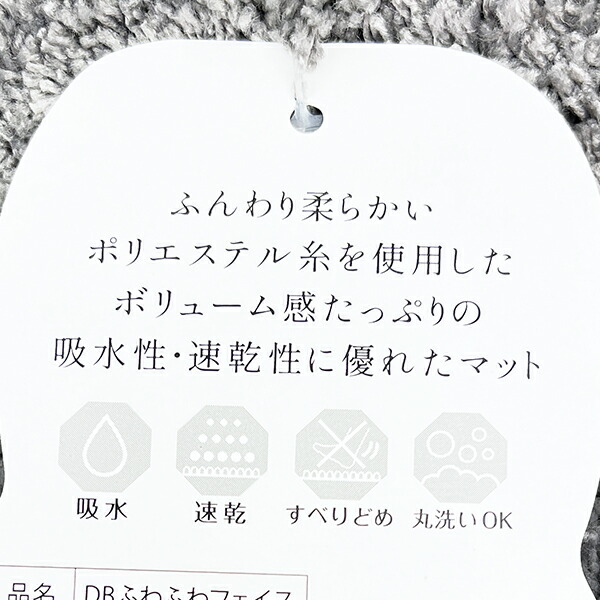 ふんわり柔らかい
ポリエステル糸を使用した
ボリューム感たっぷりの
吸水性・速乾性に優れたマット
吸水 速乾 すべりどめ 丸洗いOK
品名 DBふわふわフェイス